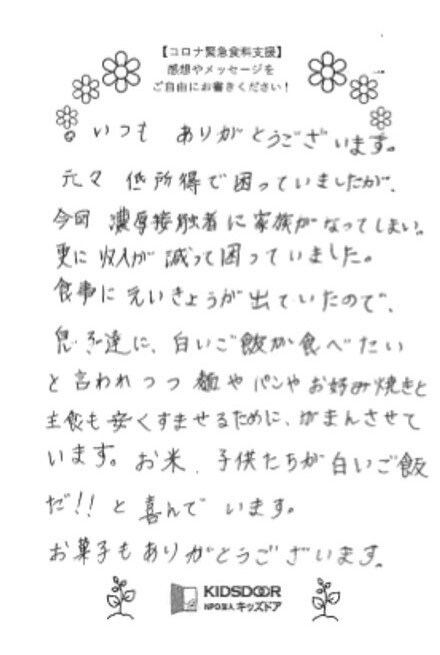 【コロナ緊急食料支援】
感想やメッセージを
ご自由にお書きください！
◎ いつも ありがとうございます。
元々 低所得で困っていましたが、
今回 濃厚接触者に家族がなってしまい。
更に収入が減って困っていました。
食事にえいきょうが出ていたので、
息子達に、白いご飯が食べたい
と言われつつ 麺やパンやお好み焼きと
主食も安くすませるために、がまんさせて
います。お米、子供たちが白いご飯
だ!!と喜んでいます。
お菓子もありがとうございます。
KIDSDOOR
NPO法人 キッズドア